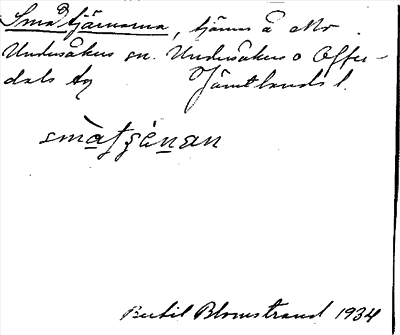 Småtjärnarna, tjärnar å Mo
Undersåkers sn. Undersåkers o Offer-
dals tg Jämtlands l.
smàtʂæ̀nan
Bertil Blomstrand 1934